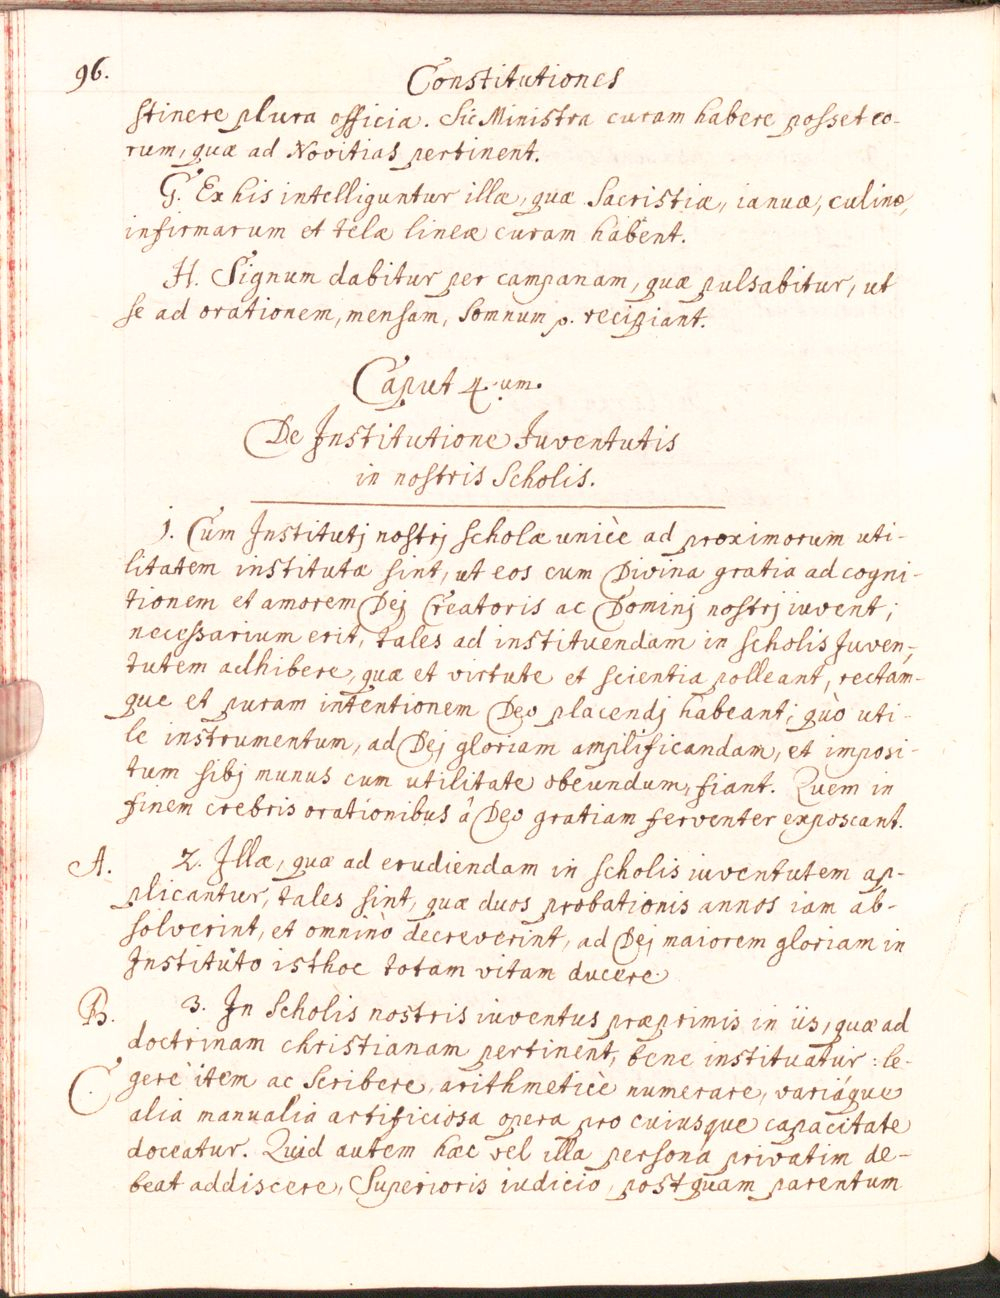 96.
Constitutiones
stinere plura officia. Sic Ministra curam habere posset eo-
rum, quæ ad Novitias pertinent.
G. Ex his intelliguntur illæ, quæ Sacristiæ, ianuæ, culinæ,
infirmarum et telæ lineæ curam habent.
H. Signum dabitur per campanam, quæ pulsabitur, ut
se ad orationem, mensam, somnum p. recipiant.
Caput 4.um.
De Institutione Iuventutis
in nostris Scholis.
1. Cum Institutj nostrj scholæ unicè ad proximorum uti-
litatem institutæ sint, ut eos cum Divina gratia ad cogni-
tionem et amorem Dej Creatoris ac Dominj nostrj iuvent;
necessarium erit, tales ad instituendam in scholis Juven-
tutem adhibere, quæ et virtute et scientia polleant, rectam-
que et puram intentionem Deo placendj habeant; quò uti-
le instrumentum, ad Dej gloriam amplificandam, et imposi-
tum sibj munus cum utilitate obeundum, fiant. Quem in
finem crebris orationibus â Deo gratiam ferventer exposcant.
A. 2. Illæ, quæ ad erudiendam in scholis iuventutem ap-
plicantur, tales sint, quæ duos probationis annos iam ab-
solverint, et omninò decreverint, ad Dej maiorem gloriam in
Instituto isthoc totam vitam ducere.
B. 3. In Scholis nostris iuventus præprimis in iis, quæ ad
doctrinam christianam pertinent, bene instituatur: le-
C gere item ac scribere, arithmeticè numerare, variáque
alia manualia artificiosa opera pro cuiusque capacitate
doceatur. Quid autem hæc vel illa persona privatim de-
beat addiscere, Superioris iudicio, postquam parentum